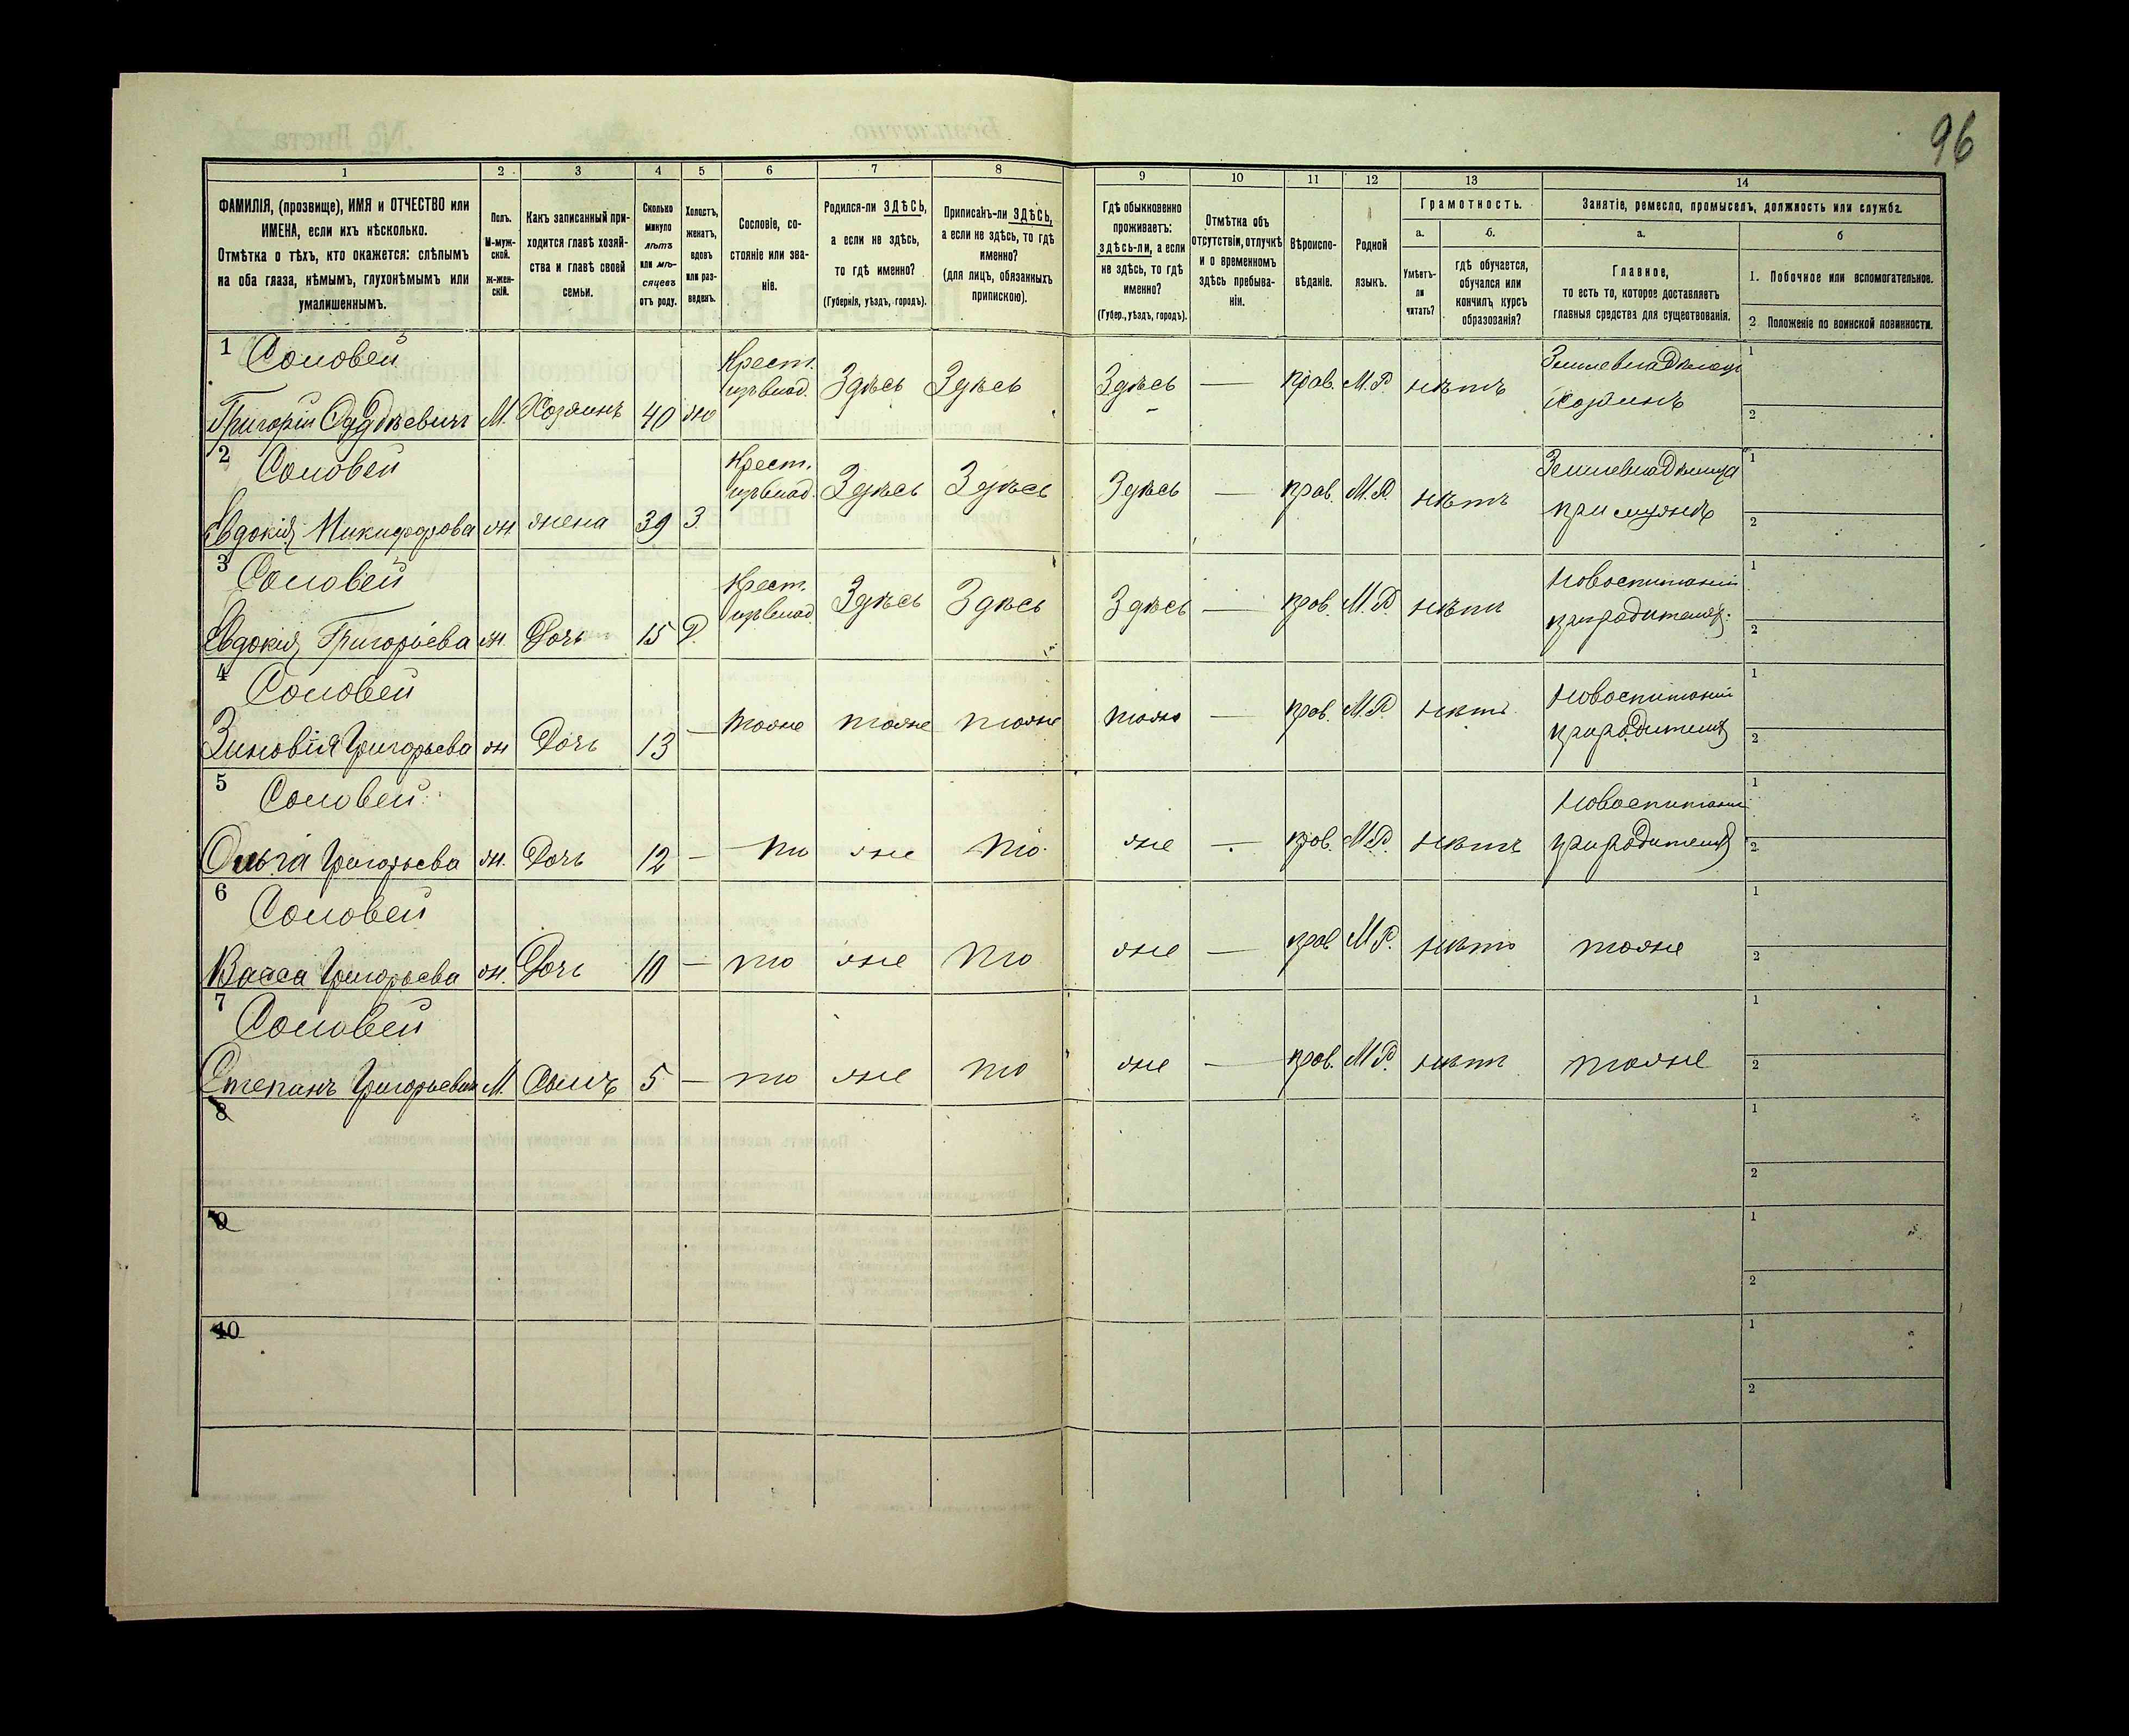 96
1 2 3 4 5 6 7 8 9 10 11 12 13 14
ФАМИЛІЯ, (прозвище), ИМЯ и ОТЧЕСТВО или
ИМЕНА, если ихъ нѣсколько.
Отмѣтка о тѣхъ, кто окажется: слѣпымъ
на оба глаза, нѣмымъ, глухонѣмымъ или
умалишеннымъ.
Полъ.
М-муж-
ской.
ж-жен-
скій.
Какъ записанный при-
ходится главѣ хозяй-
ства и главѣ своей
семьи.
Сколько
минуло
лѣтъ
или мѣ-
сяцевъ
отъ роду.
Холостъ,
женатъ,
вдовъ
или раз-
веденъ.
Сословіе, со-
стояніе или зва-
ніе.
Родился-ли ЗДѢСЬ,
а если не здѣсь,
то гдѣ именно?
(Губернія, уѣздъ, городъ).
Приписанъ-ли ЗДѢСЬ,
а если не здѣсь, то гдѣ
именно?
(для лицъ, обязанныхъ
припискою).
Гдѣ обыкновенно
проживаетъ:
здѣсь-ли, а если
не здѣсь, то гдѣ
именно?
(Губер., уѣздъ, городъ).
Отмѣтка объ
отсутствіи, отлучкѣ
и о временномъ
здѣсь пребыва-
ніи.
Вѣроиспо-
вѣданіе.
Родной
языкъ.
Грамотность.
а.
Умѣетъ-
ли
читать?
б.
гдѣ обучается,
обучался или
кончилъ курсъ
образованія?
Занятіе, ремесло, промыселъ, должность или служба.
а.
Главное,
то есть то, которое доставляетъ
главныя средства для существованія.
б
1. Побочное или вспомогательное.
2 Положеніе по воинской повинности.
1 Соловей
Крест.
Здѣсь Здѣсь Здѣсь — прав. М.Р. нѣтъ
Хозяинъ
Григорій М. Хозяинъ 40 ж
1
2
2 Соловей
Крест.
Здѣсь Здѣсь Здѣсь — прав. М.Р. нѣтъ
Землевладѣлица
при мужѣ
Евдокія Никифорова ж. жена 39 З.
1
2
3 Соловей
Крест.
Здѣсь Здѣсь Здѣсь — прав. М.Р. нѣтъ
Евдокія Григорьева ж. Дочь 15 Д.
1
2
4 Соловей
Зиновія Григорьева ж Дочь 13 — тоже тоже тоже тоже — прав. М.Р. нѣтъ
1
2
5 Соловей
Ольга Григорьева ж. Дочь 12 — то же то же — прав. М.Р. нѣтъ
1
2
6 Соловей
Васса Григорьева ж. Дочь 10 — то же то же — прав М.Р. нѣтъ тоже
1
2
7 Соловей
Степанъ Григорьевъ М. Сынъ 5 — то же то же — прав. М.Р. нѣтъ тоже
1
2
8
1
2
9
1
2
10
1
2